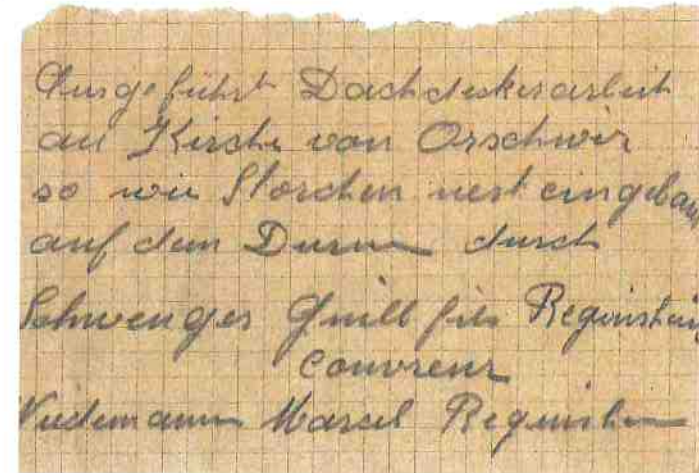 Ausgeführt Dachdekerarbeit
an Kirche von Orschwir
so wie Storchen nest eingebau
auf dem Durm durch
Schwenger fils Reguisheim
couvreur
Wiedemann Marcel Reguisheim